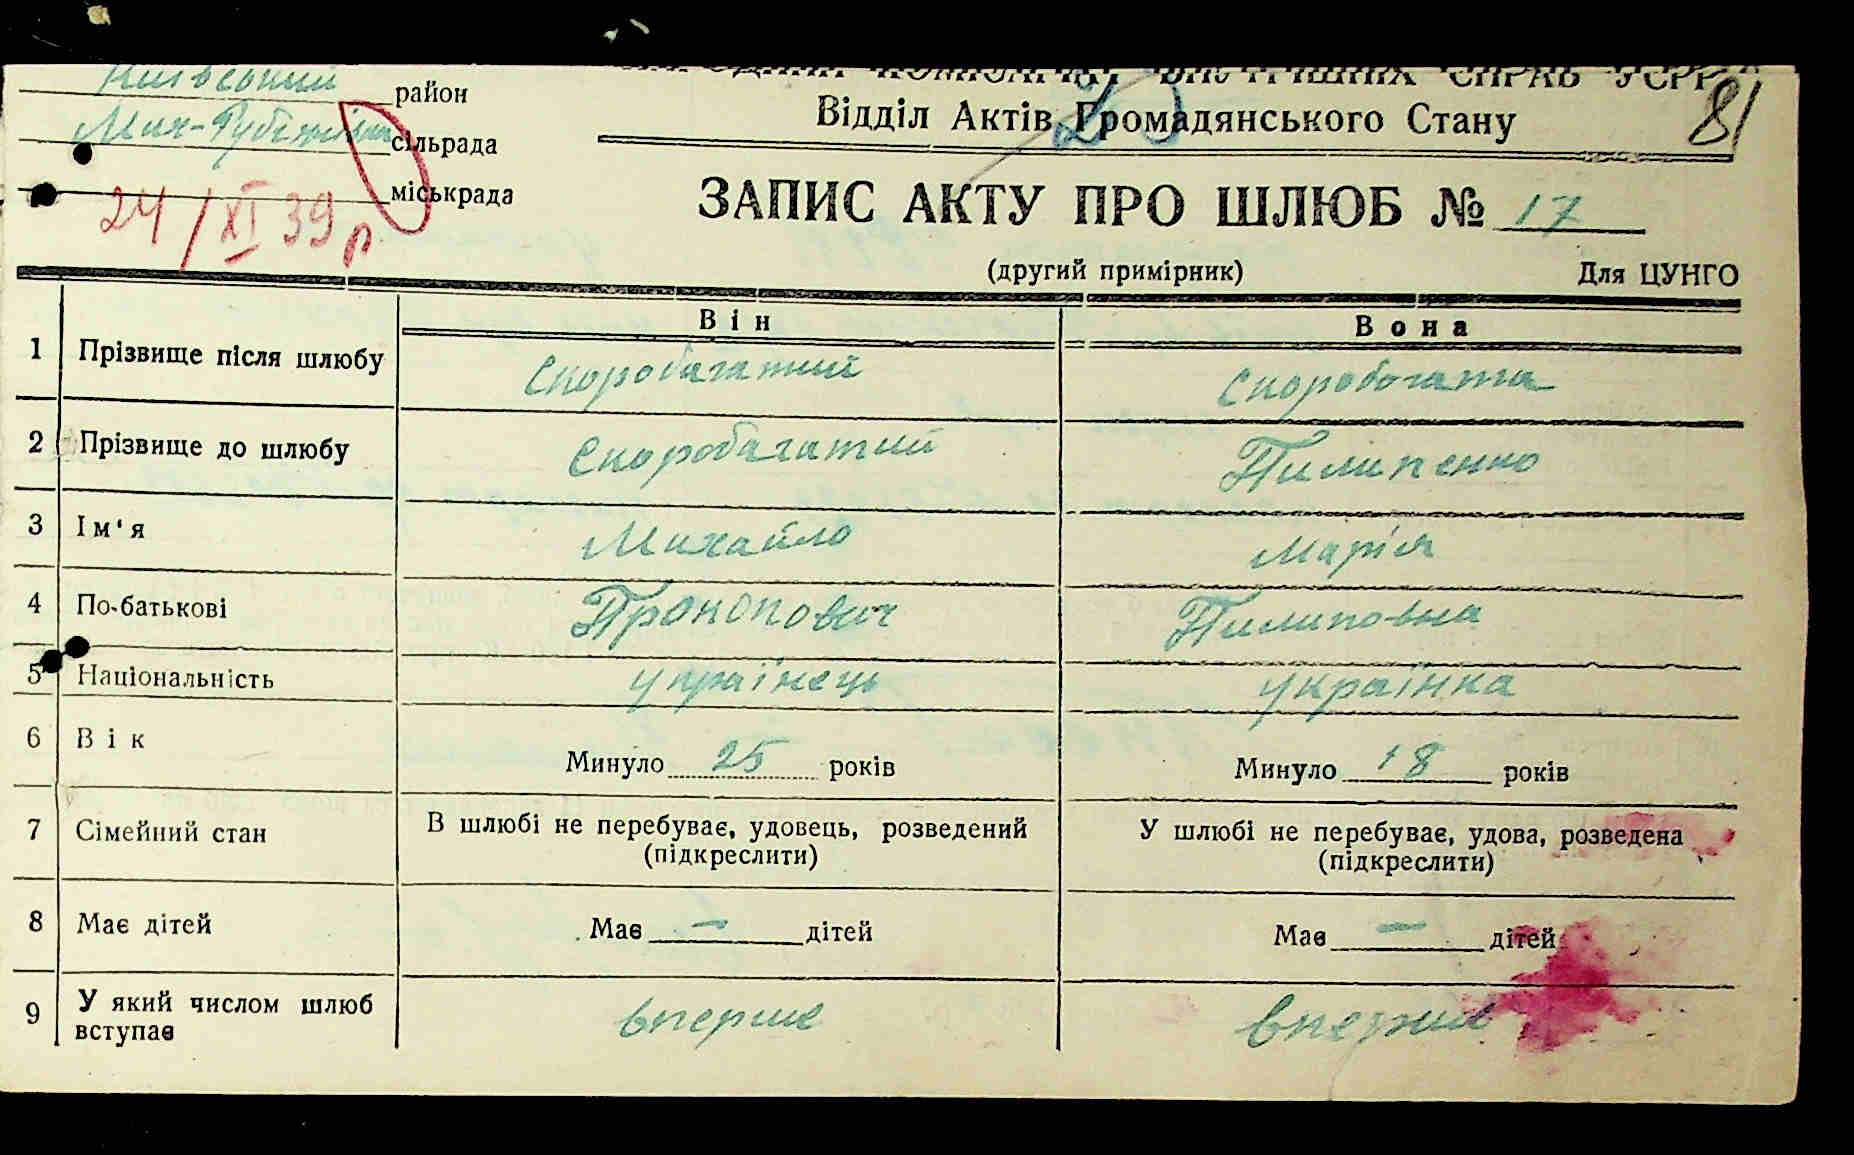 Київський район
Мих-Рубежівська сільрада
міськрада
24/XI 39р
НАРОДНИЙ КОМІСАРІАТ ВНУТРІШНІХ СПРАВ УСРР
Відділ Актів Громадянського Стану
81
ЗАПИС АКТУ ПРО ШЛЮБ № 17
(другий примірник) Для ЦУНГО
Він Вона
1 Прізвище після шлюбу Скоробагатий Скоробогата
2 Прізвище до шлюбу Скоробагатий Пилипенко
3 Ім'я Михайло Марія
4 По-батькові Прокопович Пилиповна
5 Національність українець українка
6 Вік Минуло 25 років Минуло 18 років
7 Сімейний стан В шлюбі не перебуває, удовець, розведений У шлюбі не перебуває, удова, розведена
(підкреслити) (підкреслити)
8 Має дітей Має — дітей Має — дітей
9 У який числом шлюб
вступає вперше вперше